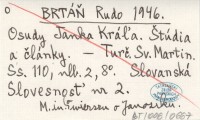 o BRTÁŇ Rudo 1946.
Osudy Janka Kráľa. Štúdia
a články. – Turč. Sv. Martin.
Ss. 110, nlb. 2, 8°. Slovanská
Slovesnosť nr 2.
M. in. o Janosiku.